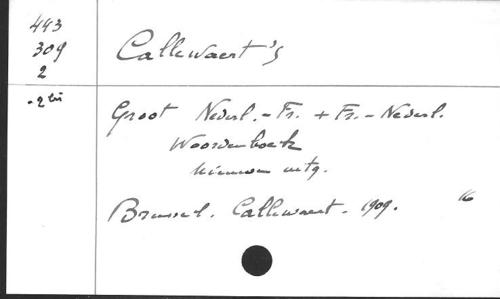 443
309
2
Callewaert's
-2bis
Groot Nederl. - Fr. + Fr. - Nederl.
Woordenboek
Nieuwe uitg.
Brussel. Callewaert. 1909. 16